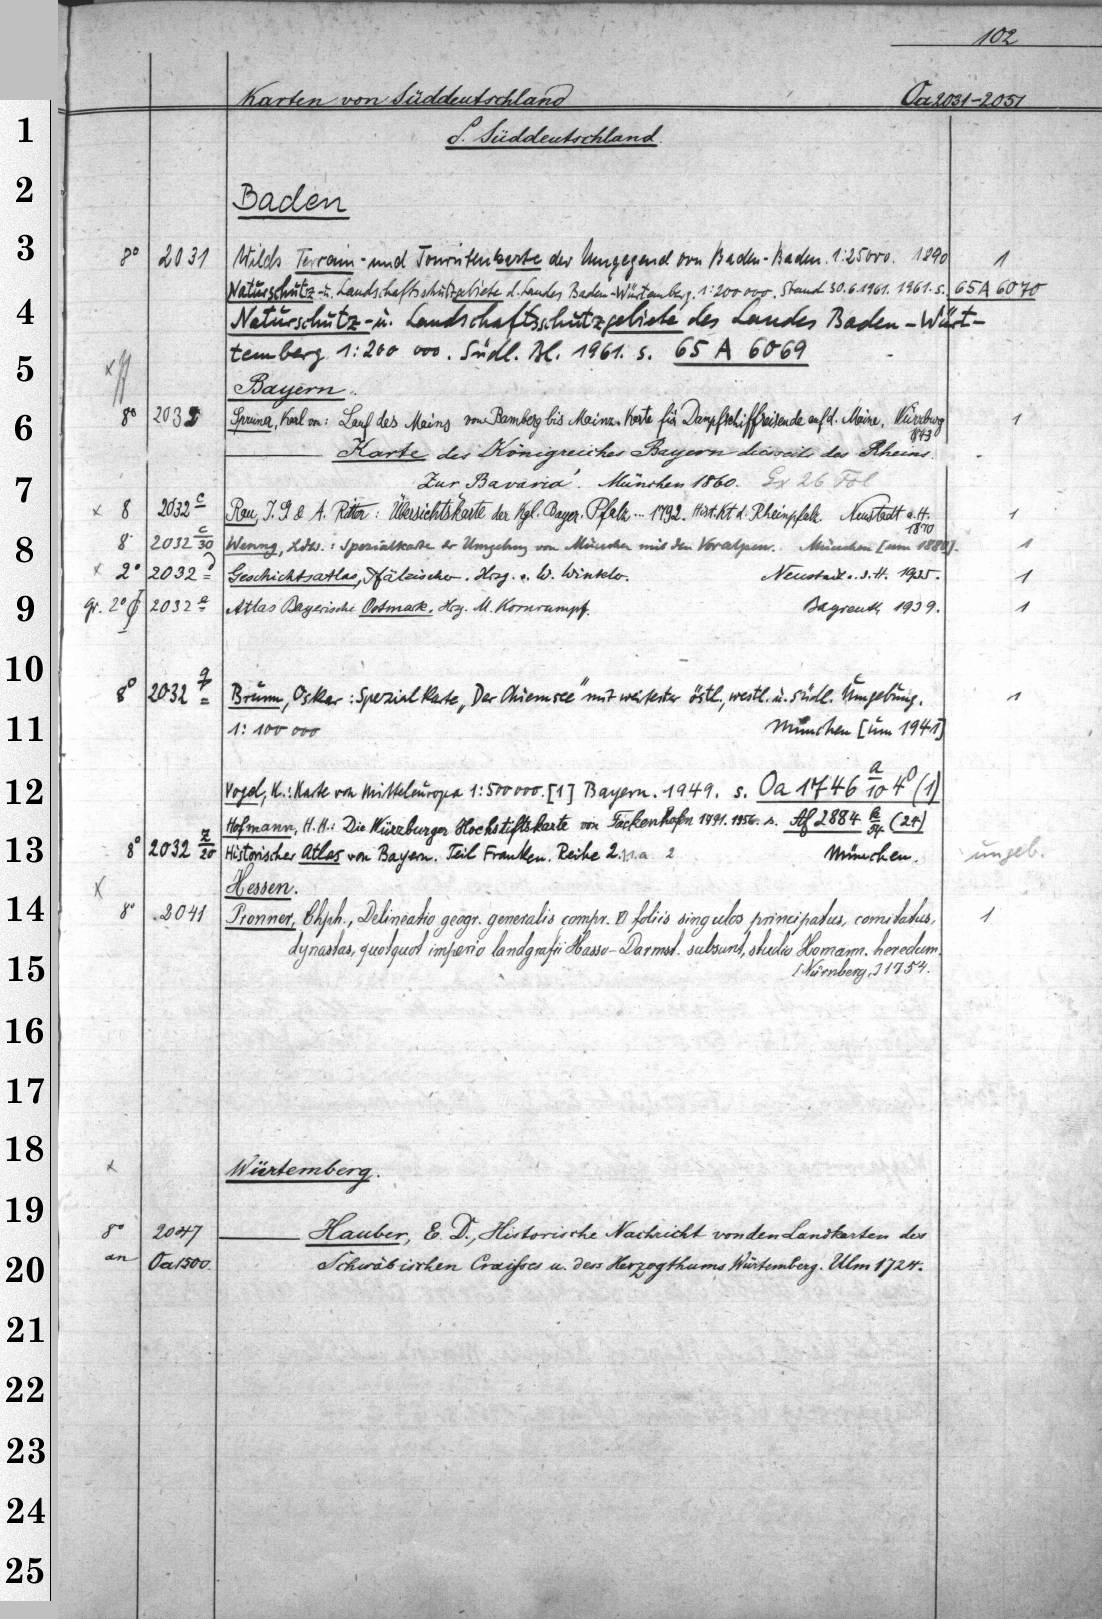 102
Karten von Süddeutschland Oa 2031-2051
1
S. Süddeutschland.
2
Baden
3
8° 2031 Wilds Terrain- und Touristenkarte der Umgegend von Baden-Baden. 1:25000. 1890 1
Naturschutz- u. Landschaftsschutzgebiete d. Landes Baden-Württemberg. 1:200 000. Stand 30.6.1961. 1961. s. 65 A 6070
4
Naturschutz- u. Landschaftsschutzgebiete des Landes Baden-Würt-
temberg 1:200 000. Südl. Bl. 1961. s. 65 A 6069
5
x
Bayern.
6
8° 2032 Spruner, Karl von: Lauf des Mains von Bamberg bis Mainz. Karte für Dampfschiffreisende auf d. Maine. Würzburg 1
1843
Karte des Königreiches Bayern diesseits des Rheins
7
Zur 'Bavaria'. München 1860. Gx 26 Fol
x 8 2032 c Rau, J. G & A. Ritter: Übersichtskarte der Kgl. Bayer. Pfalz ... 1792. Hist. Kt d. Rheinpfalz. Neustadt a. H. 1
1870
8
8 2032 c/30 Wenng, Ldw.: Spezialkarte der Umgebung von München mit den Voralpen. München [um 1880]. 1
x 2° 2032 d Geschichtsatlas, Pfälzischer. Hrsg. v. W. Winkler. Neustadt a. d. H. 1935. 1
9
gr. 2° 2032 e Atlas Bayerische Ostmark. Hrg. M. Kornrumpf. Bayreuth 1939. 1
10
8° 2032 g Brunn, Oskar: Spezialkarte „Der Chiemsee" mit weitester östl., westl. u. südl. Umgebung. 1
11
1:100 000 München [um 1941]
12
Vogel, K.: Karte von Mitteleuropa 1:500 000. [1] Bayern. 1949. s. Oa 1746 a/10 4° (1)
Hofmann, H. H.: Die Würzburger Hochstiftskarte von Fackenhofen 1791. 1956. s. Af 2884 (21)
13
8° 2032 z/20 Historischer Atlas von Bayern. Teil Franken. Reihe 2. München. ungeb.
x
Hessen.
14
8° 2041 Pronner, Chph., Delineatio geogr. generalis compr. foliis singulos principatus, comitatus, 1
dynastas, quotquot imperio landgrafii Hasso-Darmst. subsunt, studio Homann. heredum.
15
[Nürnberg,] 1754.
16
17
18
x
Würtemberg.
19
8° 2047 Hauber, E. D., Historische Nachricht von den Landkarten des
20
an Oa 1500. Schwäbischen Craisses u. dess Herzogthums Würtemberg. Ulm 1724.
21
22
23
24
25